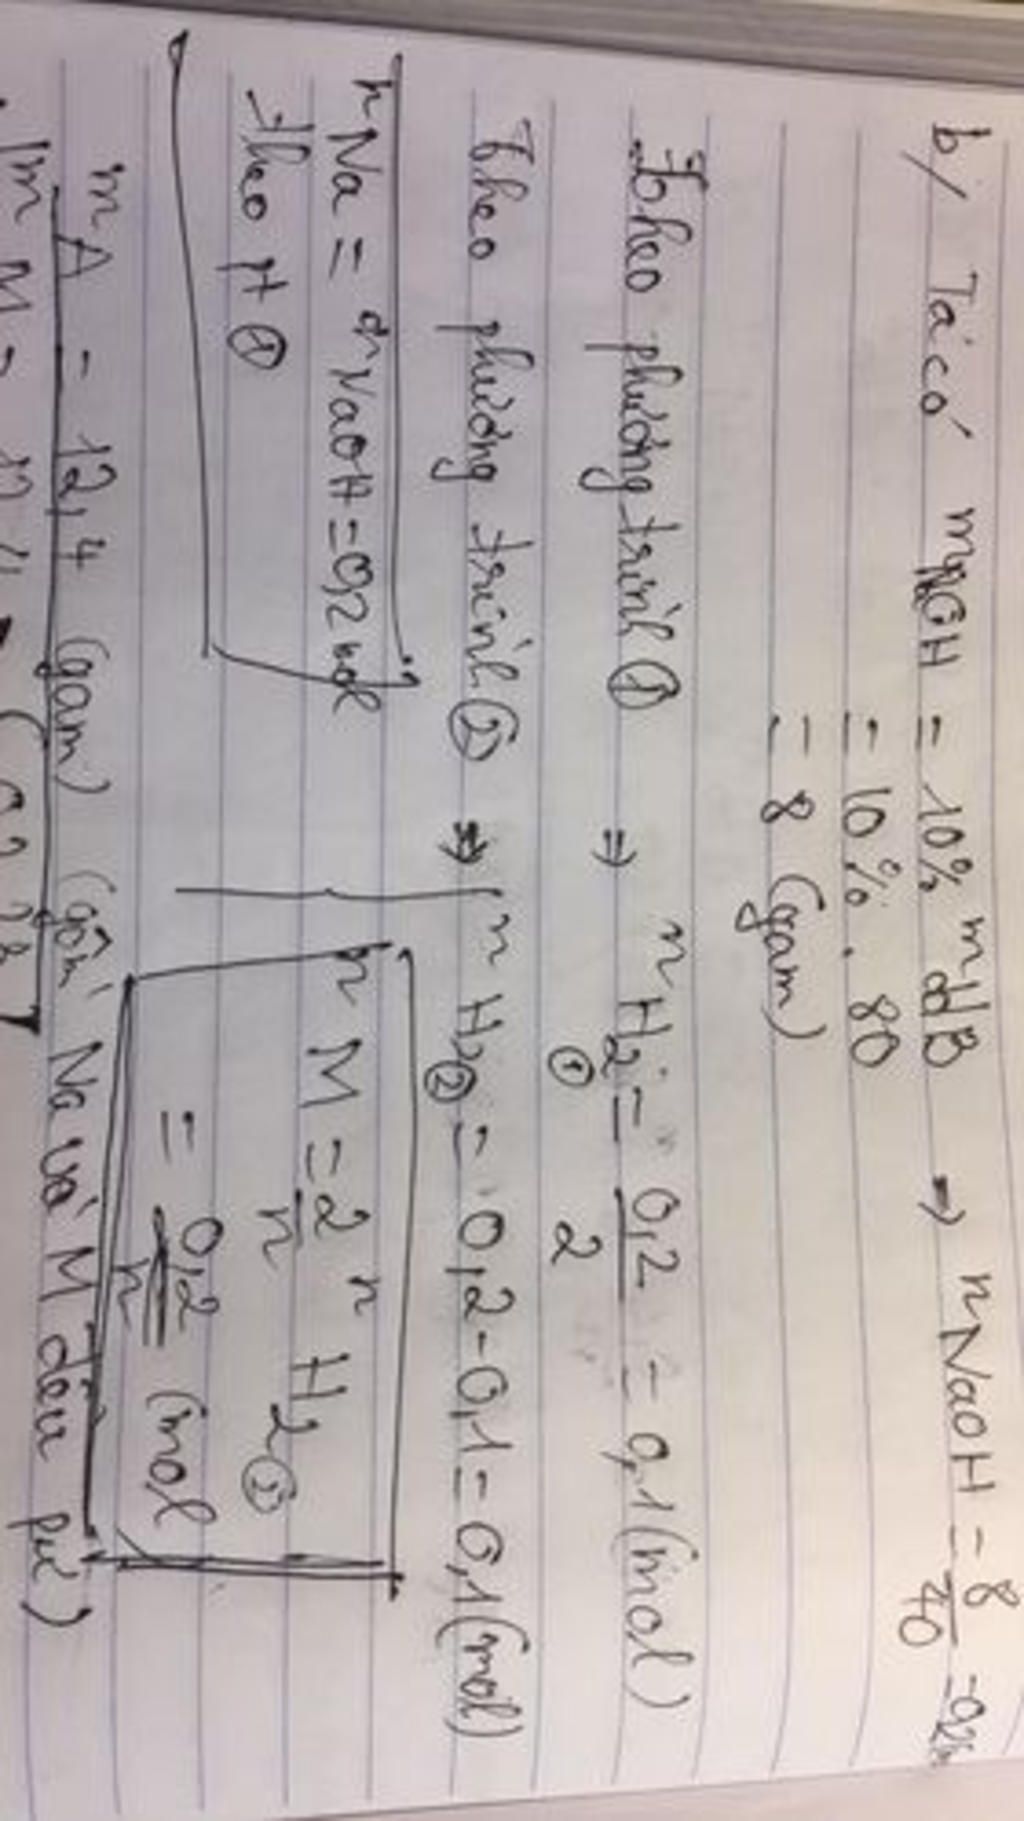 b/ Ta có mNaOH = 10% mddB → nNaOH = 8/40 = 0,2m
= 10%. 80
= 8 (gam)
Theo phương trình ① ⇒ nH2 ① = 0,2/2 = 0,1 (mol)
Theo phương trình ② ⇒ nH2 ② = 0,2-0,1 = 0,1 (mol)
nNa = nNaOH = 0,2 mol
Theo pt ①
nM = 2/n nH2 ②
= 0,2/n (mol
mA = 12,4 (gam) (gồm Na và M đều pư)